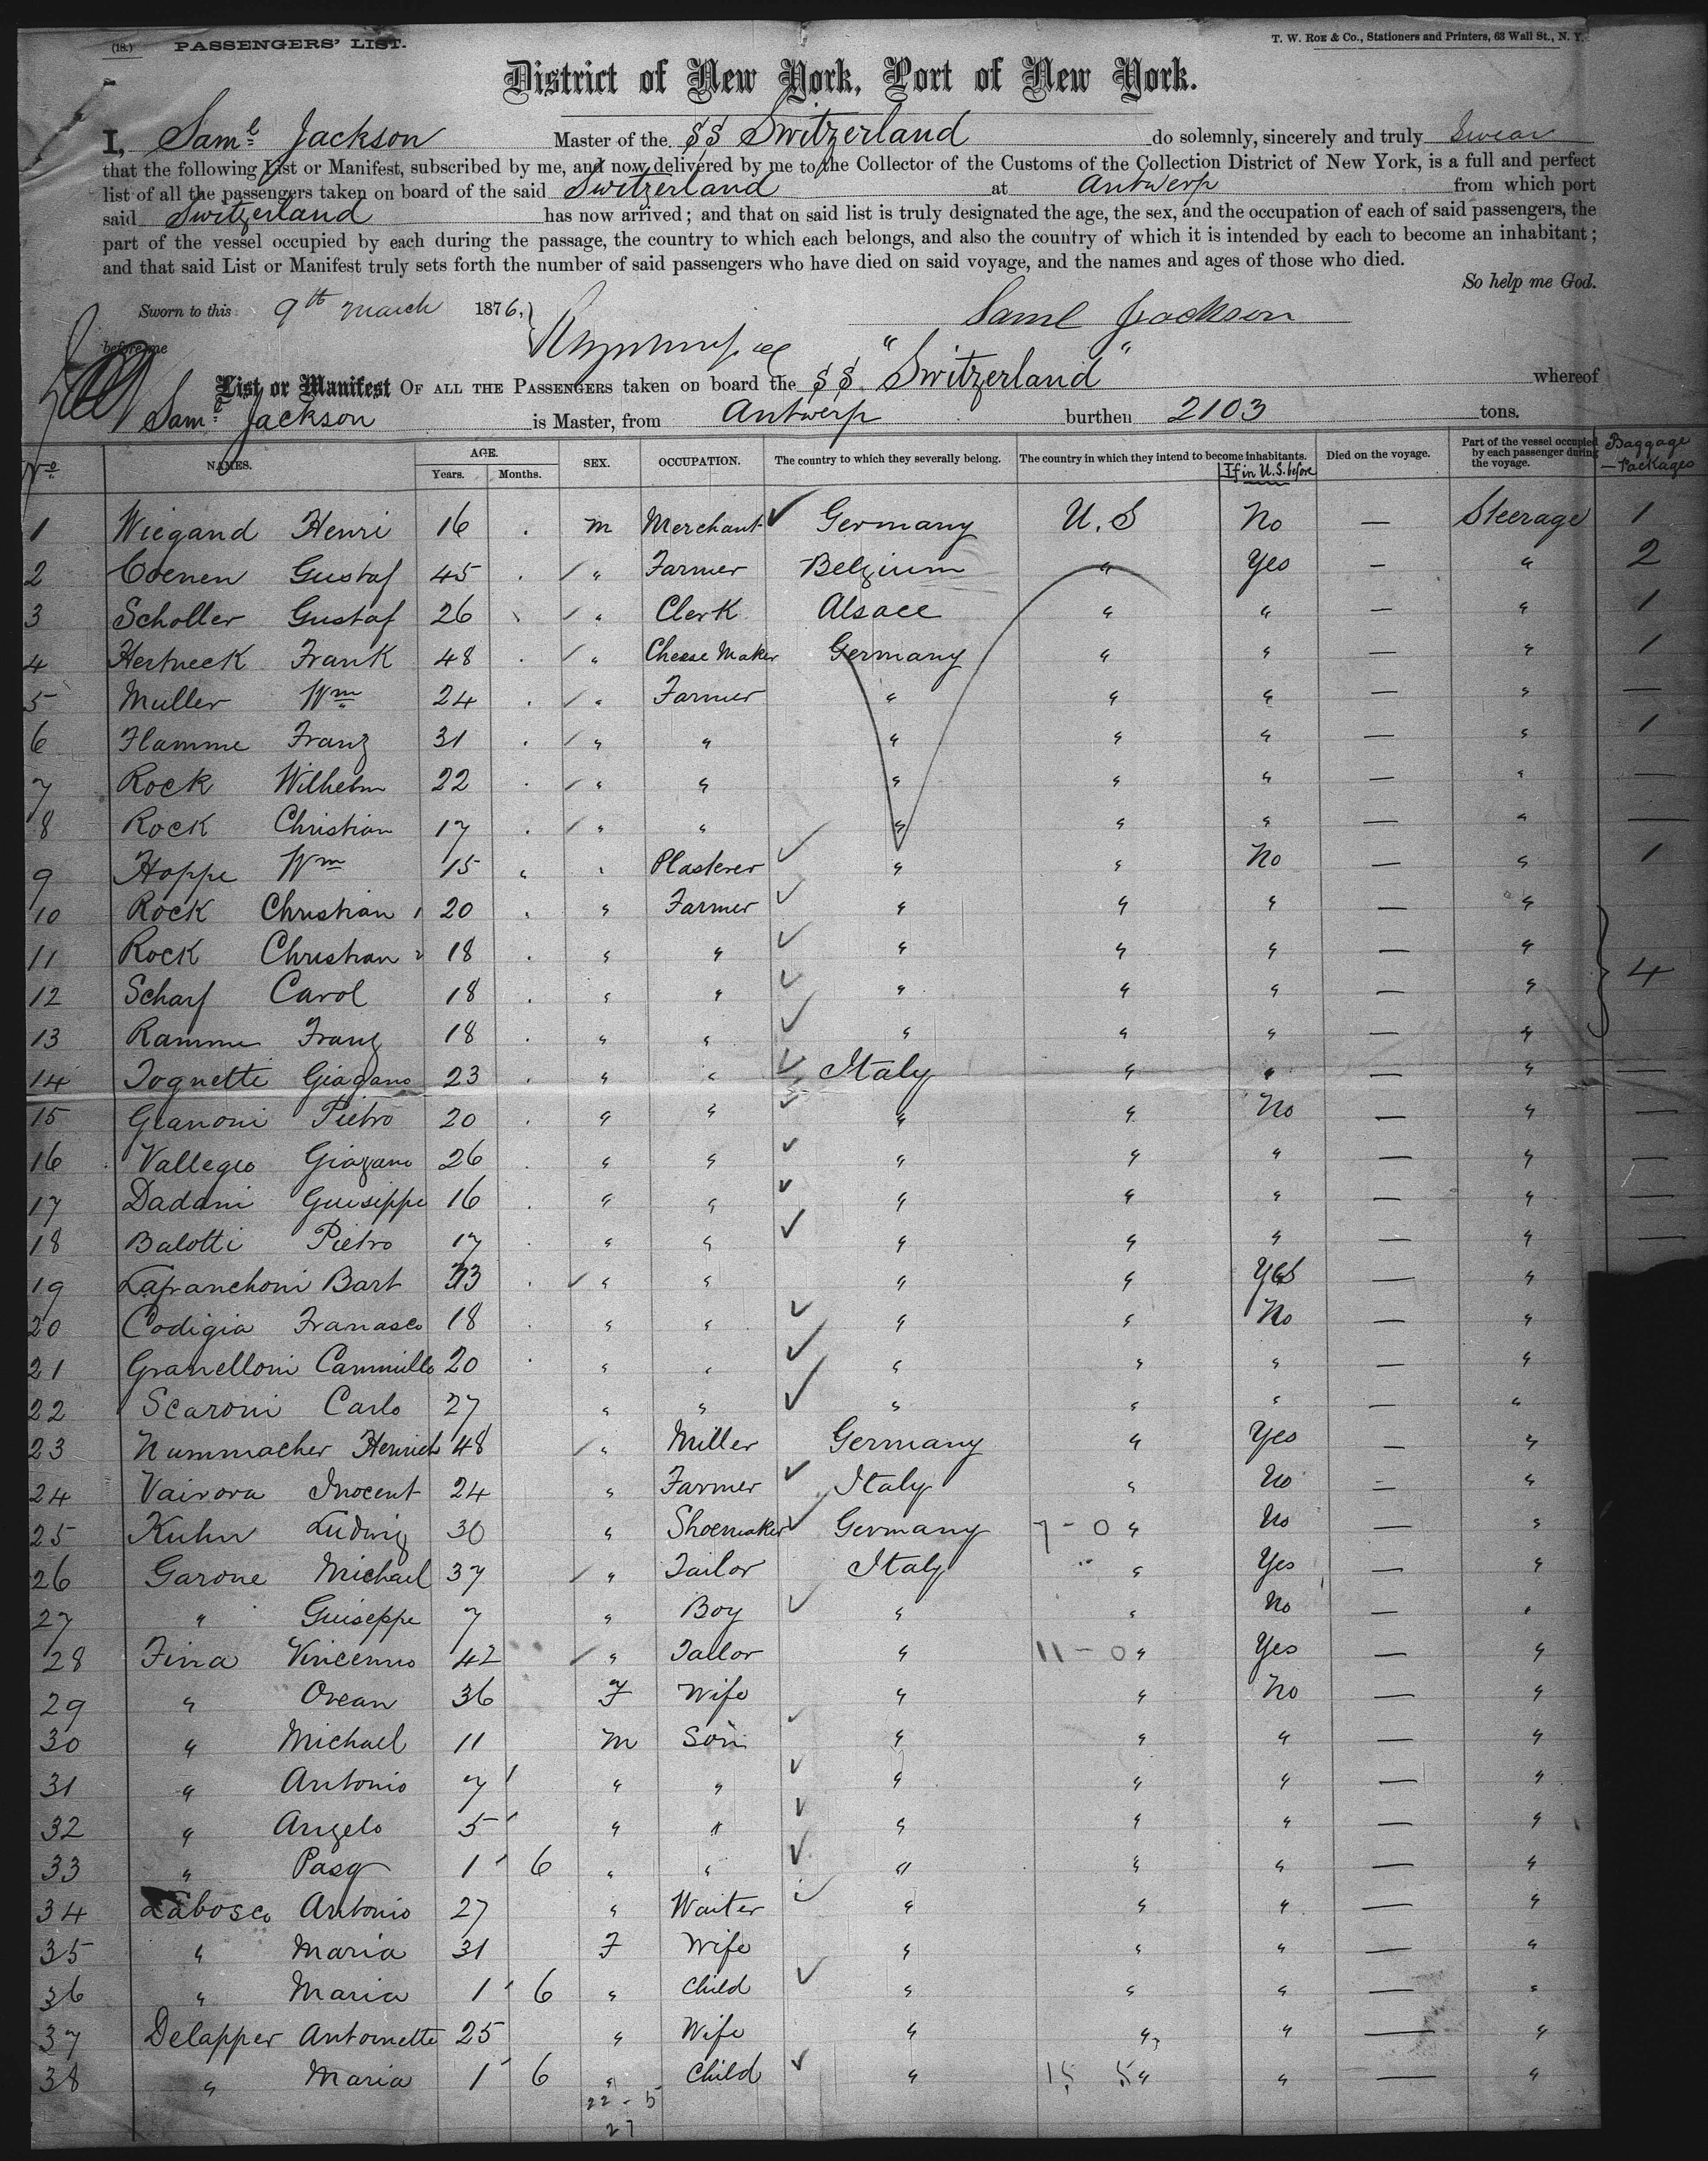 (18.) PASSENGERS' LIST. T. W. Roe & Co., Stationers and Printers, 63 Wall St., N. Y.
District of New York, Port of New York.
I, Saml Jackson Master of the SS Switzerland do solemnly, sincerely and truly swear
that the following List or Manifest, subscribed by me, and now delivered by me to the Collector of the Customs of the Collection District of New York, is a full and perfect
list of all the passengers taken on board of the said Switzerland at Antwerp from which port
said Switzerland has now arrived; and that on said list is truly designated the age, the sex, and the occupation of each of said passengers, the
part of the vessel occupied by each during the passage, the country to which each belongs, and also the country of which it is intended by each to become an inhabitant;
and that said List or Manifest truly sets forth the number of said passengers who have died on said voyage, and the names and ages of those who died.
So help me God.
Sworn to this 9th March 1876, Saml Jackson
before me
List or Manifest OF ALL THE PASSENGERS taken on board the SS "Switzerland" whereof
Saml Jackson is Master, from Antwerp burthen 2103 tons.
No NAMES. AGE. Years. Months. SEX. OCCUPATION. The country to which they severally belong. The country in which they intend to become inhabitants. If in U.S. before Died on the voyage. Part of the vessel occupied by each passenger during the voyage. Baggage - Packages
1 Wiegand Henri 16 . m Merchant ✓ Germany U.S No — Steerage 1
2 Coenen Gustaf 45 . / " Farmer Belgium " Yes — " 2
3 Scholler Gustaf 26 / " Clerk Alsace " " — " 1
4 Hertneck Frank 48 . / " Cheese Maker Germany " " — " 1
5 Muller Wm 24 . / " Farmer " " " — " —
6 Flamme Franz 31 . / " " " " " — " 1
7 Rock Wilhelm 22 . / " " " " " — " —
8 Rock Christian 17 . / " " " " " — " —
9 Hoppe Wm 15 " " Plasterer ✓ " " No — " 1
10 Rock Christian 1 20 . " Farmer ✓ " " " — "
11 Rock Christian 2 18 . " " ✓ " " " — "
12 Scharf Carol 18 . " " ✓ " " " — " } 4
13 Ramme Franz 18 . " " ✓ " " " — "
14 Tognetti Giagano 23 . " " ✓ Italy " " — " —
15 Gianoni Pietro 20 . " " ✓ " " No — " —
16 Vallegio Giagano 26 . " " ✓ " " " — " —
17 Dadani Guiseppe 16 . " " ✓ " " " — " —
18 Balotti Pietro 17 . " " ✓ " " " — " —
19 Lafranchoni Bart 33 . ✓ " " " " Yes — "
20 Codigia Franasco 18 . " " ✓ " " No — "
21 Granelloni Cammillo 20 . " " ✓ " " " — "
22 Scaroni Carlo 27 " " ✓ " " " — "
23 Nummacher Henrich 48 / " Miller Germany " Yes — "
24 Vairora Inocent 24 " Farmer ✓ Italy " No — "
25 Kuhn Ludwig 30 " Shoemaker ✓ Germany 7 - 0 " No — "
26 Garone Michael 37 / " Tailor Italy " Yes — "
27 " Guiseppe 7 " Boy ✓ " " No — "
28 Fina Vincenno 42 / " Tailor " 11 - 0 " Yes — "
29 " Orean 36 F Wife " " No — "
30 " Michael 11 m Son ✓ " " " — "
31 " Antonio 7 " " ✓ " " " — "
32 " Angelo 5 " " ✓ " " " — "
33 " Pasq 1 6 " " ✓ " " " — "
34 Labosco Antonio 27 " Waiter ✓ " " " — "
35 " Maria 31 F Wife " " " — "
36 " Maria 1 6 " Child ✓ " " " — "
37 Delapper Antoinette 25 " Wife " " " — "
38 " Maria 1 6 " Child ✓ " 15 5 " " — "
22 - 5
27